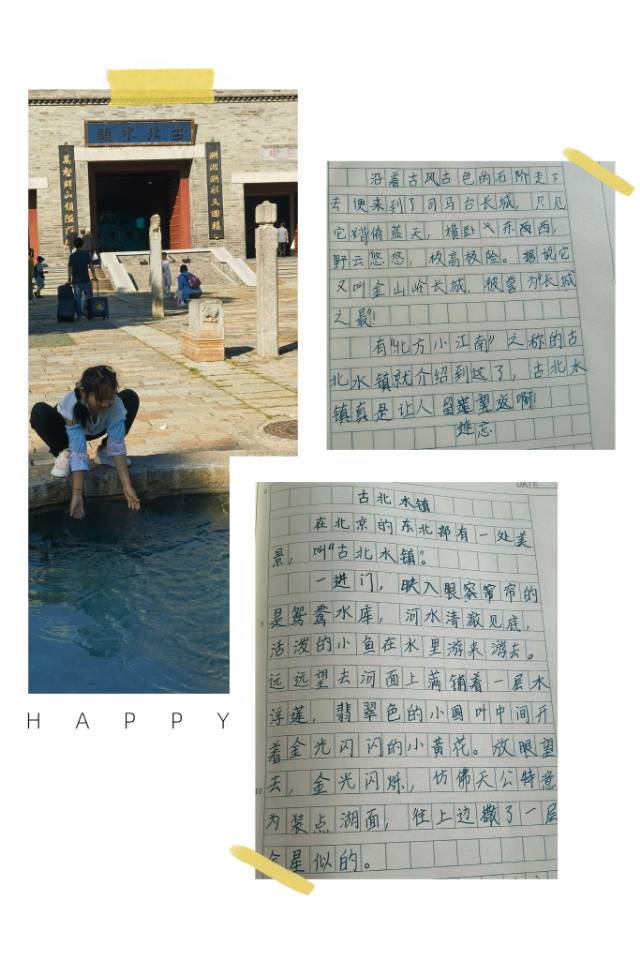 古北水鎮
沿着古风古色的石阶走下
去便来到了司马台长城,只见
它 蓝天,横卧 东西西,
野云悠悠,极高极险。据说它
又叫金山岭长城,被誉为"长城
之最"!
有"北方小江南"之称的古
北水镇就介绍到这了,古北水
镇真是让人留 望返啊!
连忘
DATE
古北水镇
在北京的东北部有一处美
景,叫"古北水镇"。
一进门,映入眼 帘的
是鸳鸯水库,河水清澈见底,
活泼的小鱼在水里游来游去。
远远望去河面上满铺着一层水
浮莲,翡翠色的小圆叶中间开
着金光闪闪的小黄花。放眼望
去,金光闪烁,仿佛天公特意
为装点湖面,往上边撒了一层
金星似的。
HAPPY